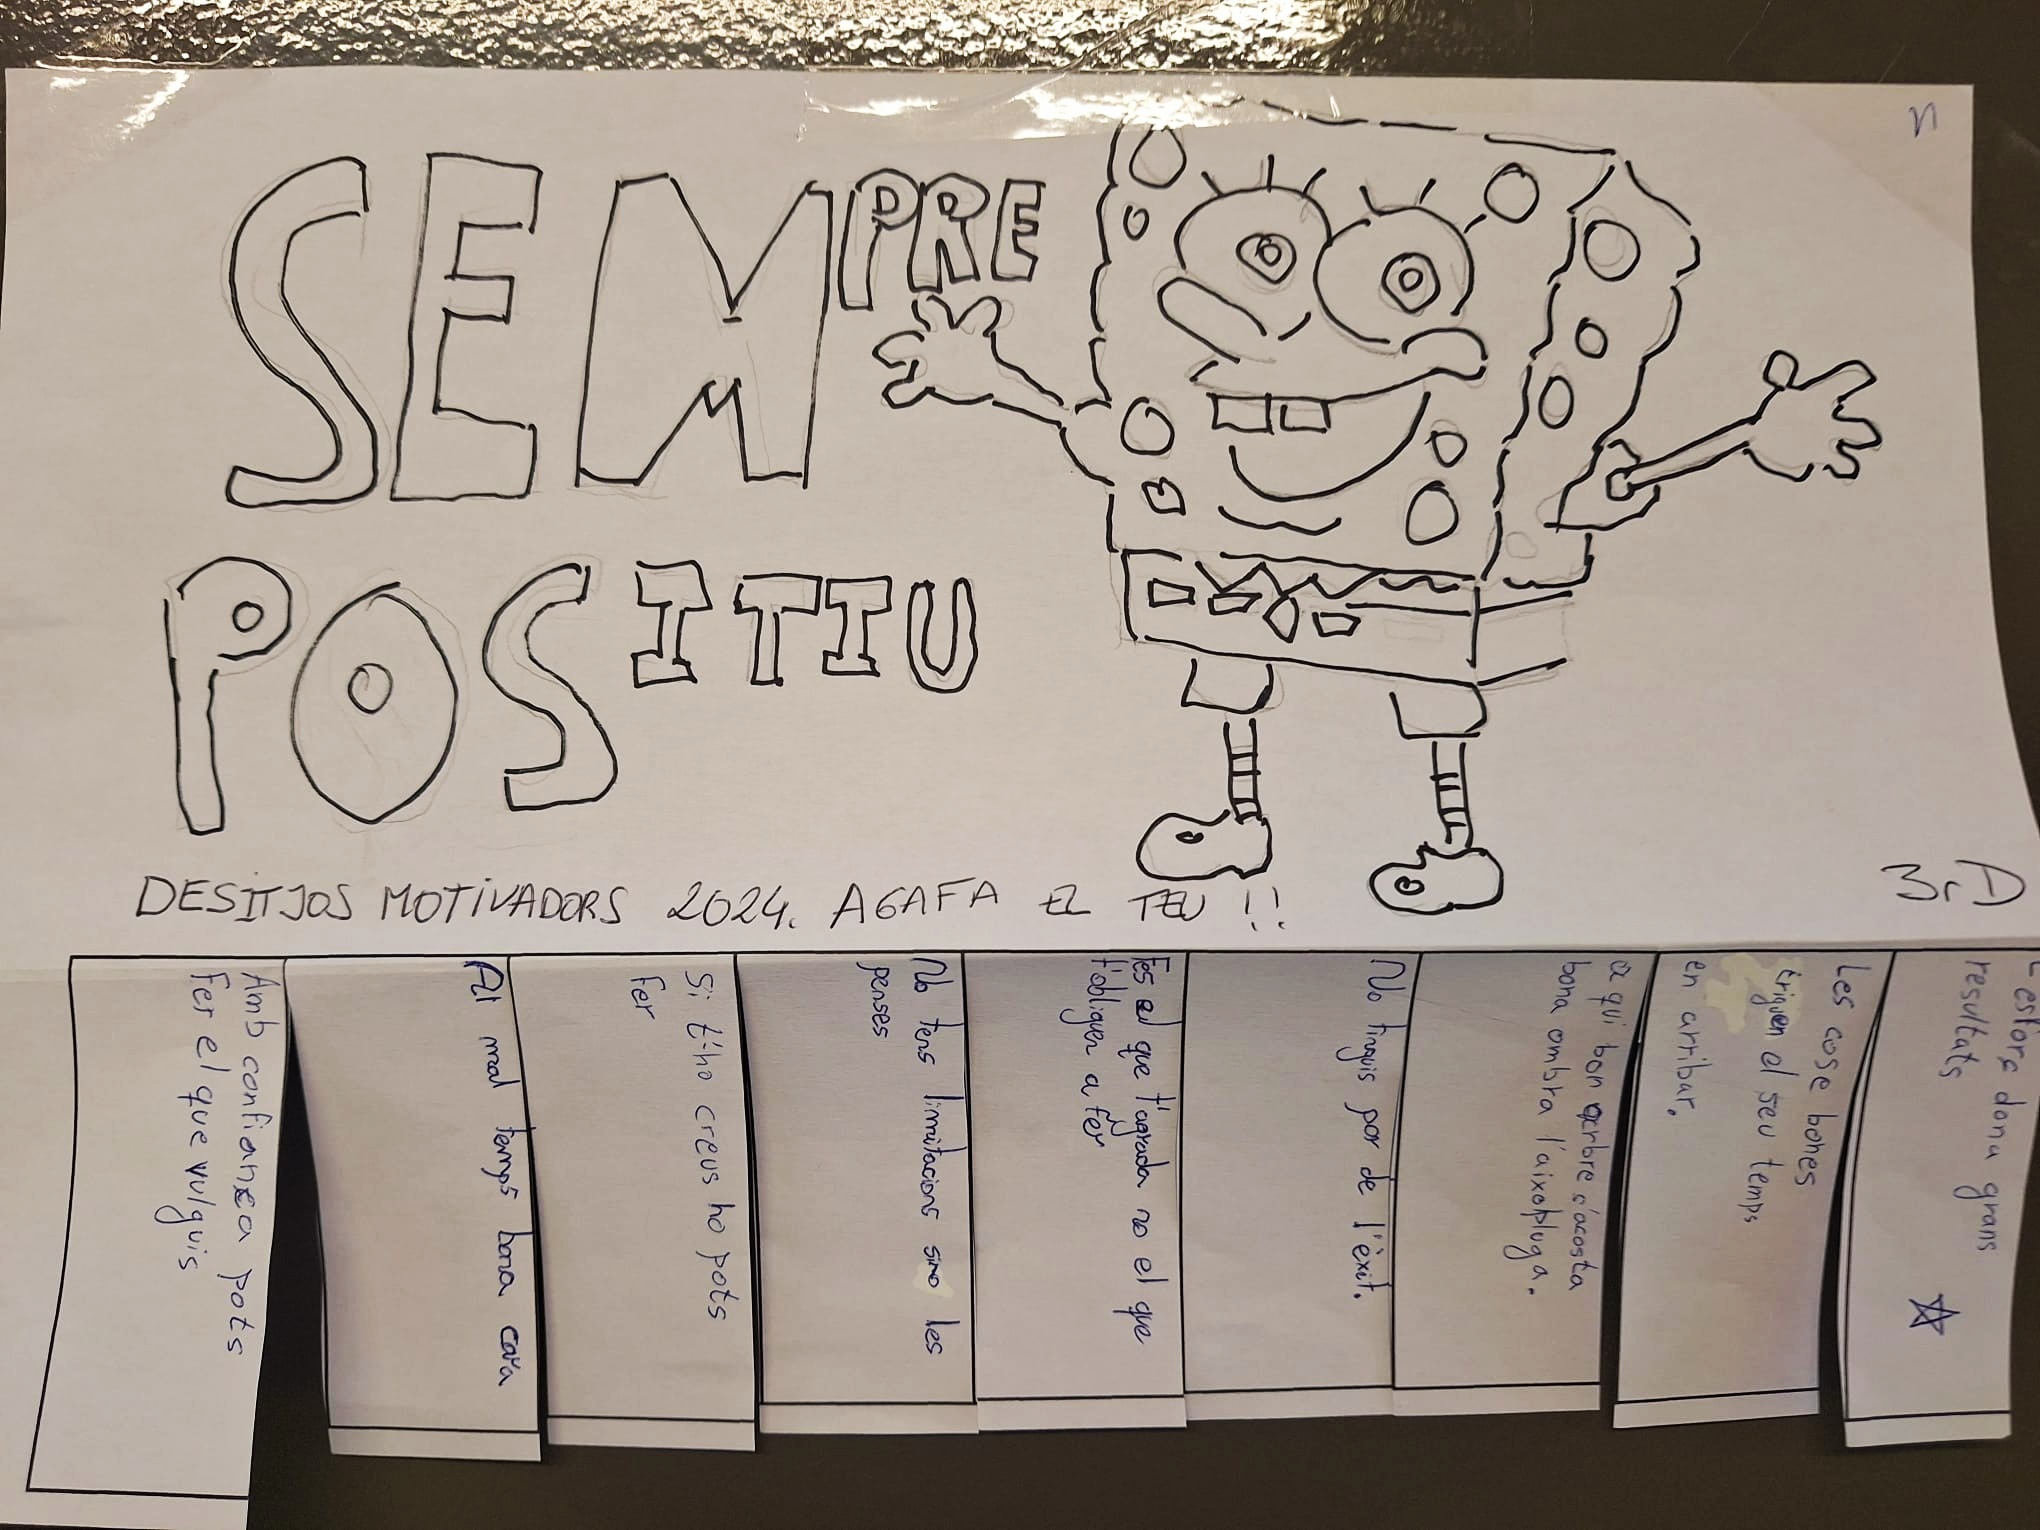 SEMPRE
POSITIU
DESITJOS MOTIVADORS 2024. AGAFA EL TEU !!
3rD
Amb confiança pots
Fer el que vulguis
Al mal temps bona cara
Si t'ho creus ho pots
fer
No tens limitacions sino les
penses
Fes el que t'agrada no el que
t'obliguen a fer
No tinguis por de l'èxit.
a qui bon arbre s'acosta
bona ombra l'aixopluga.
Les cose bones
triguen el seu temps
en arribar.
L'esforç dona grans
resultats